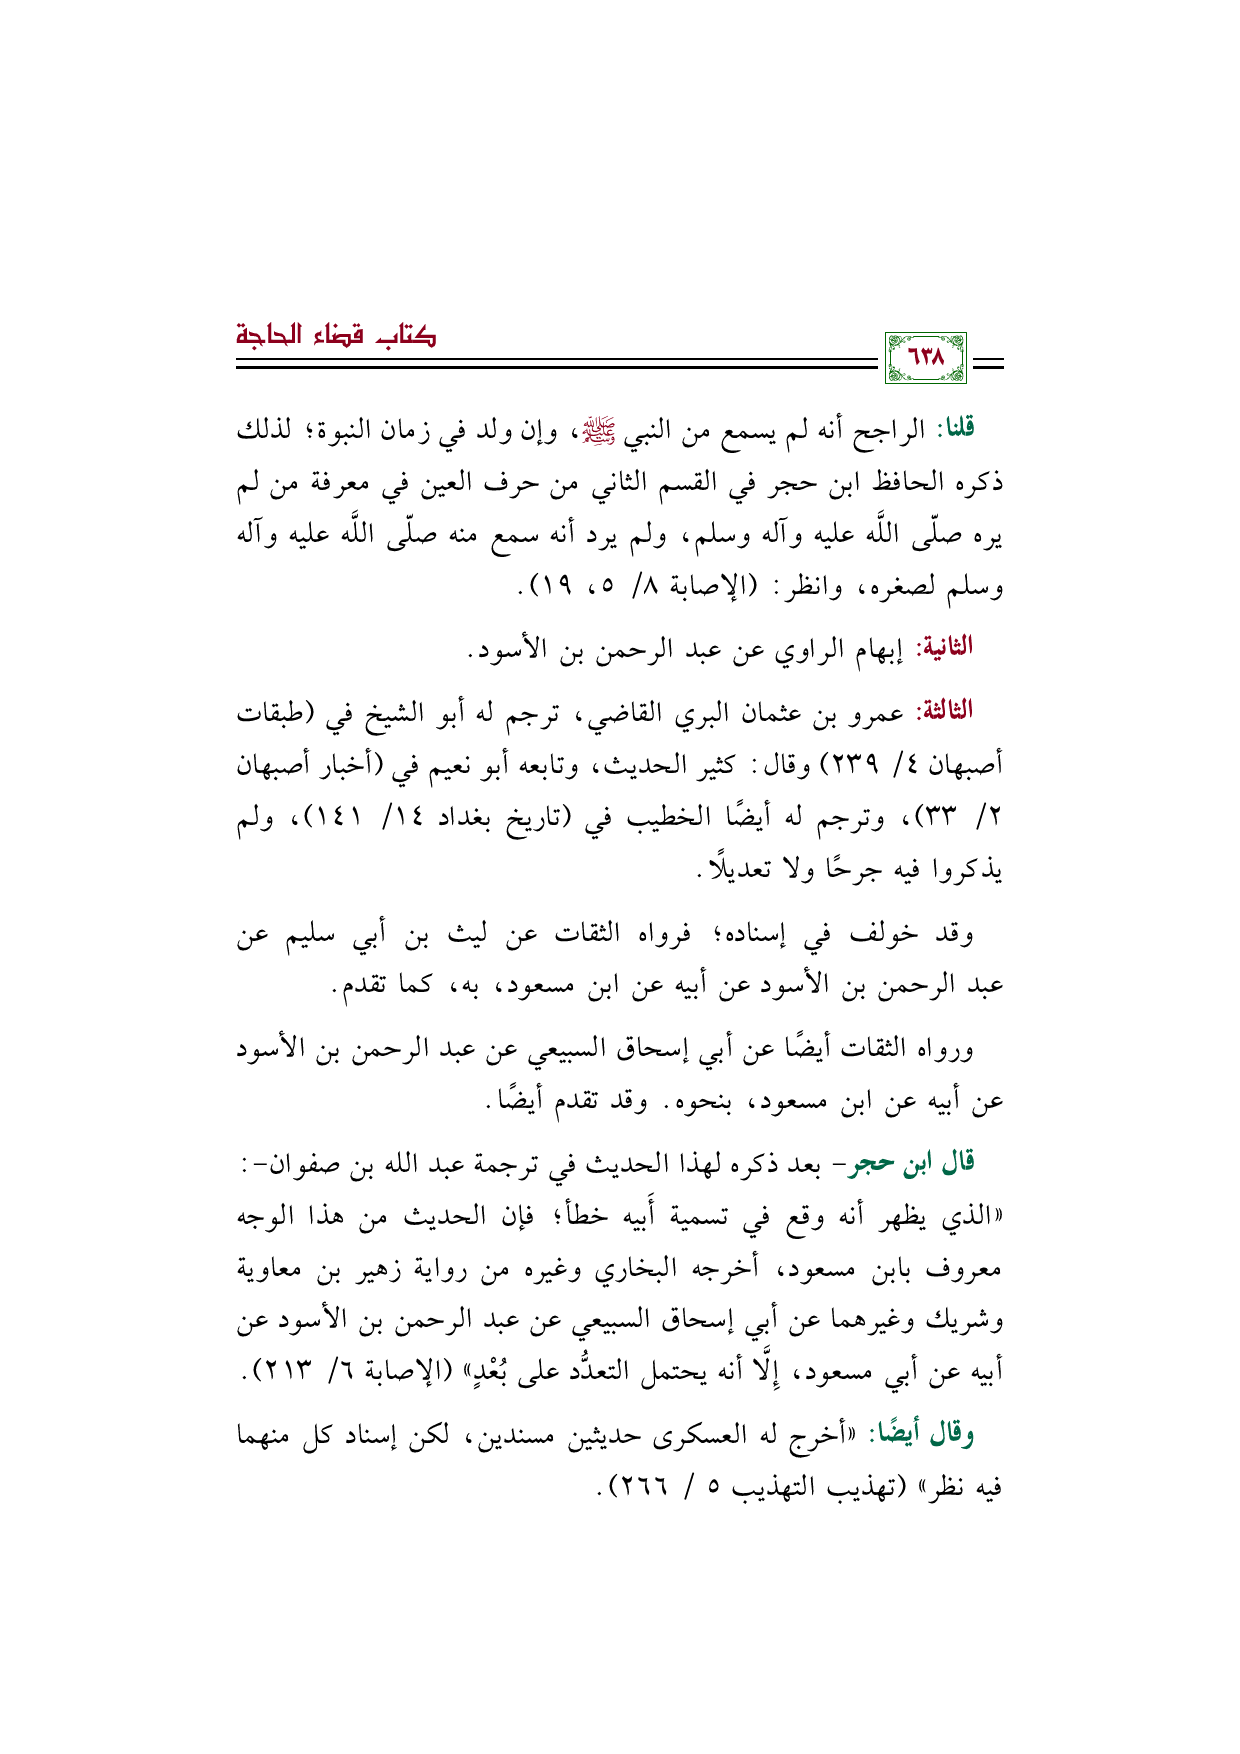 كتاب قضاء الحاجة
٦٣٨
قلنا: الراجح أنه لم يسمع من النبي ﷺ، وإن ولد في زمان النبوة؛ لذلك
ذكره الحافظ ابن حجر في القسم الثاني من حرف العين في معرفة من لم
يره صلّى اللَّه عليه وآله وسلم، ولم يرد أنه سمع منه صلّى اللَّه عليه وآله
وسلم لصغره، وانظر: (الإصابة ٨/ ٥، ١٩).
الثانية: إبهام الراوي عن عبد الرحمن بن الأسود.
الثالثة: عمرو بن عثمان البري القاضي، ترجم له أبو الشيخ في (طبقات
أصبهان ٤/ ٢٣٩) وقال: كثير الحديث، وتابعه أبو نعيم في (أخبار أصبهان
٢/ ٣٣)، وترجم له أيضًا الخطيب في (تاريخ بغداد ١٤/ ١٤١)، ولم
يذكروا فيه جرحًا ولا تعديلًا.
وقد خولف في إسناده؛ فرواه الثقات عن ليث بن أبي سليم عن
عبد الرحمن بن الأسود عن أبيه عن ابن مسعود، به، كما تقدم.
ورواه الثقات أيضًا عن أبي إسحاق السبيعي عن عبد الرحمن بن الأسود
عن أبيه عن ابن مسعود، بنحوه. وقد تقدم أيضًا.
قال ابن حجر- بعد ذكره لهذا الحديث في ترجمة عبد الله بن صفوان-:
«الذي يظهر أنه وقع في تسمية أَبيه خطأ؛ فإن الحديث من هذا الوجه
معروف بابن مسعود، أخرجه البخاري وغيره من رواية زهير بن معاوية
وشريك وغيرهما عن أبي إسحاق السبيعي عن عبد الرحمن بن الأسود عن
أبيه عن أبي مسعود، إِلَّا أنه يحتمل التعدُّد على بُعْدٍ» (الإصابة ٦/ ٢١٣).
وقال أيضًا: «أخرج له العسكرى حديثين مسندين، لكن إسناد كل منهما
فيه نظر» (تهذيب التهذيب ٥ / ٢٦٦).